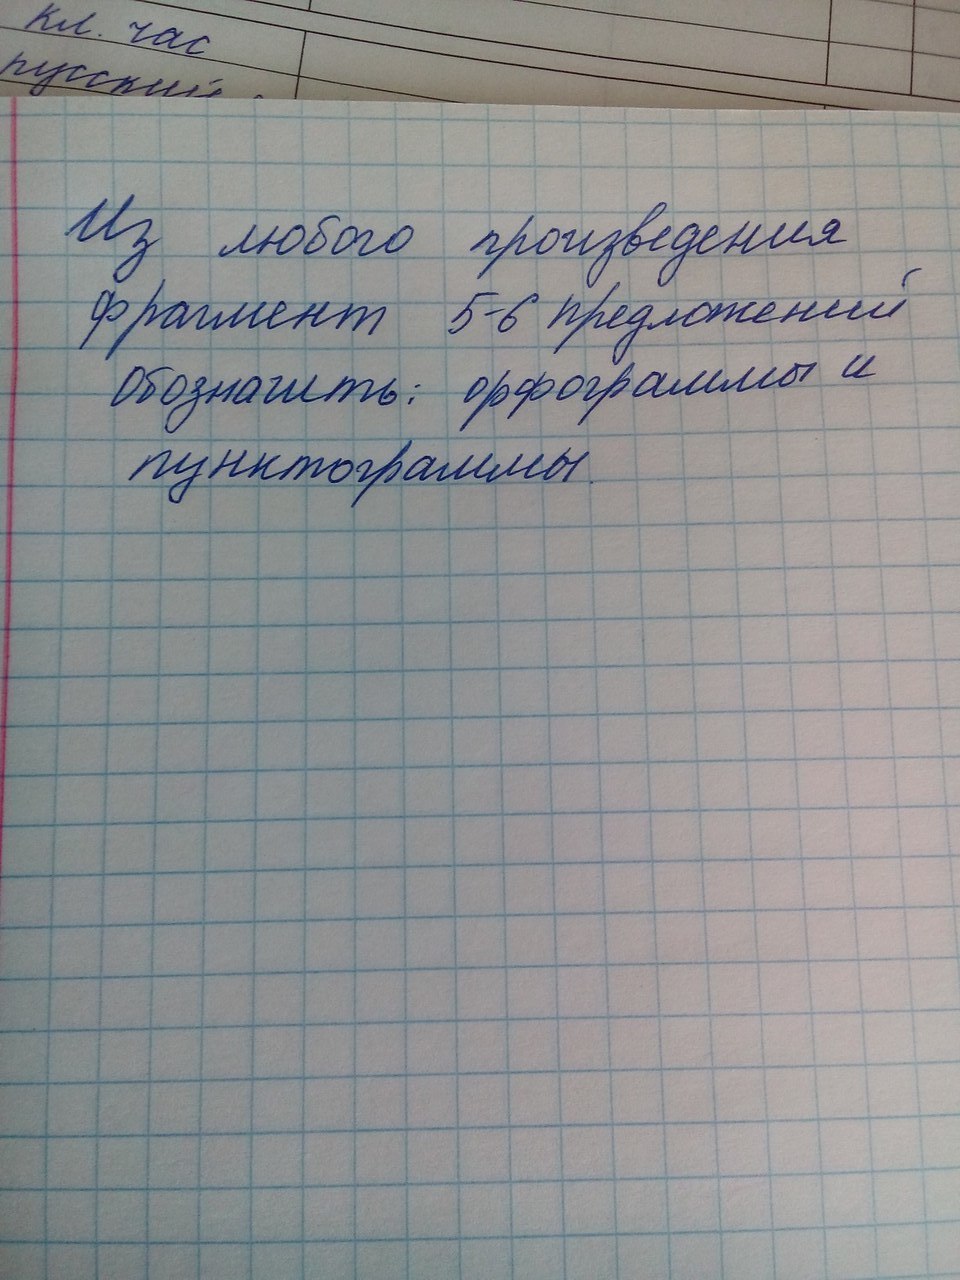 кл. час
русский
Из любого произведения
фрагмент 5-6 предложений
Обозначить: орфограммы и
пунктограммы.